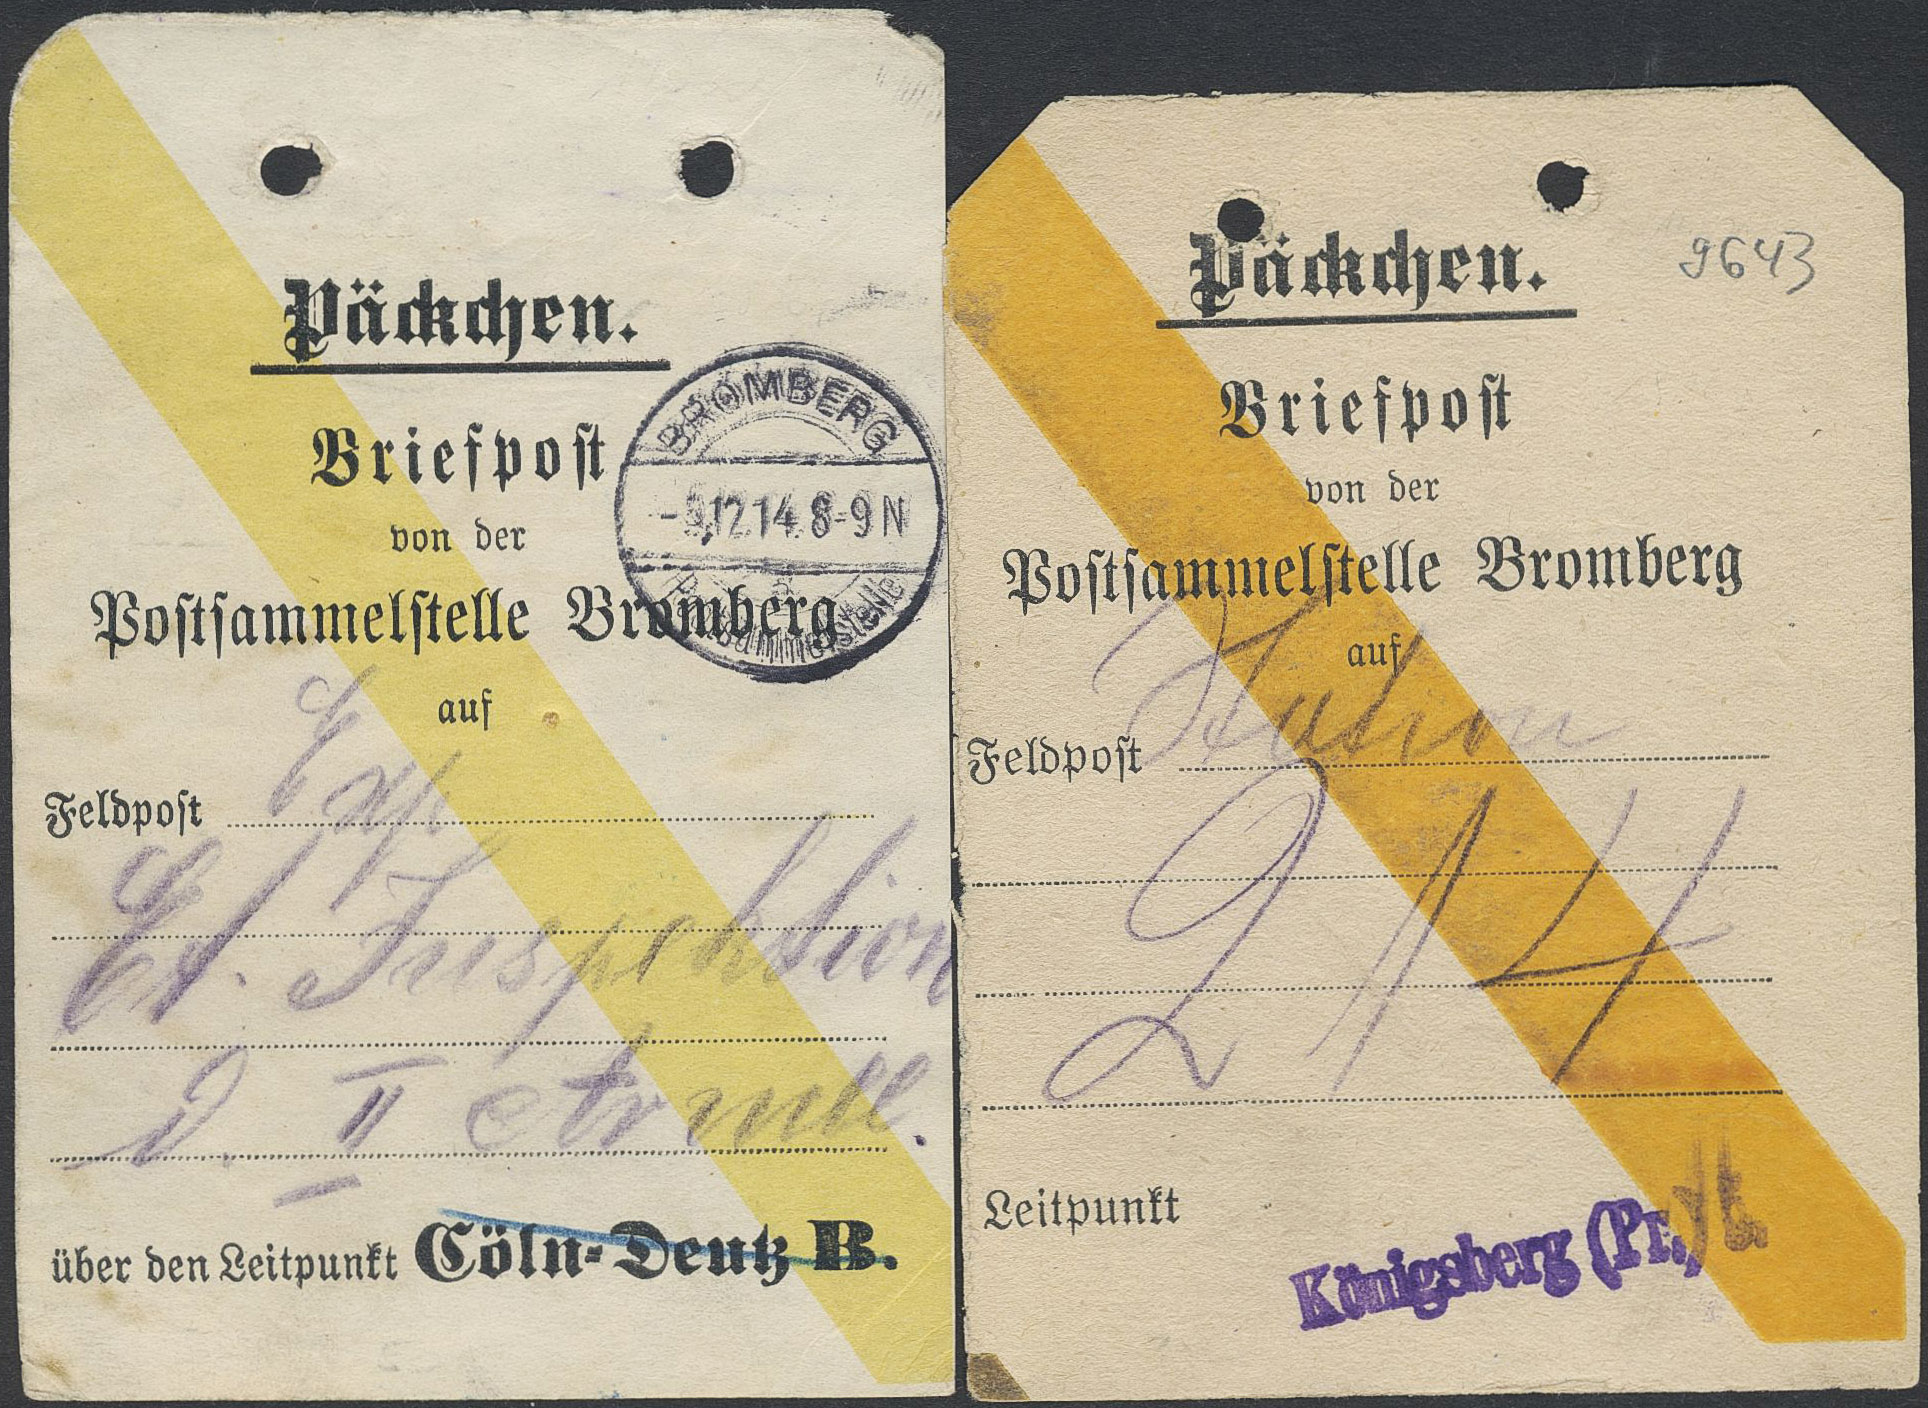 Päckchen.
Briefpost
von der
Postsammelstelle Bromberg
auf
Feldpost
Et. Inspektion
d. II Armee.
über den Leitpunkt Cöln-Deutz B.
BROMBERG
12.14. 8-9 N
Postsammelstelle
9643
Päckchen.
Briefpost
von der
Postsammelstelle Bromberg
auf
Feldpost Station
214
Leitpunkt
Königsberg (Pr.)